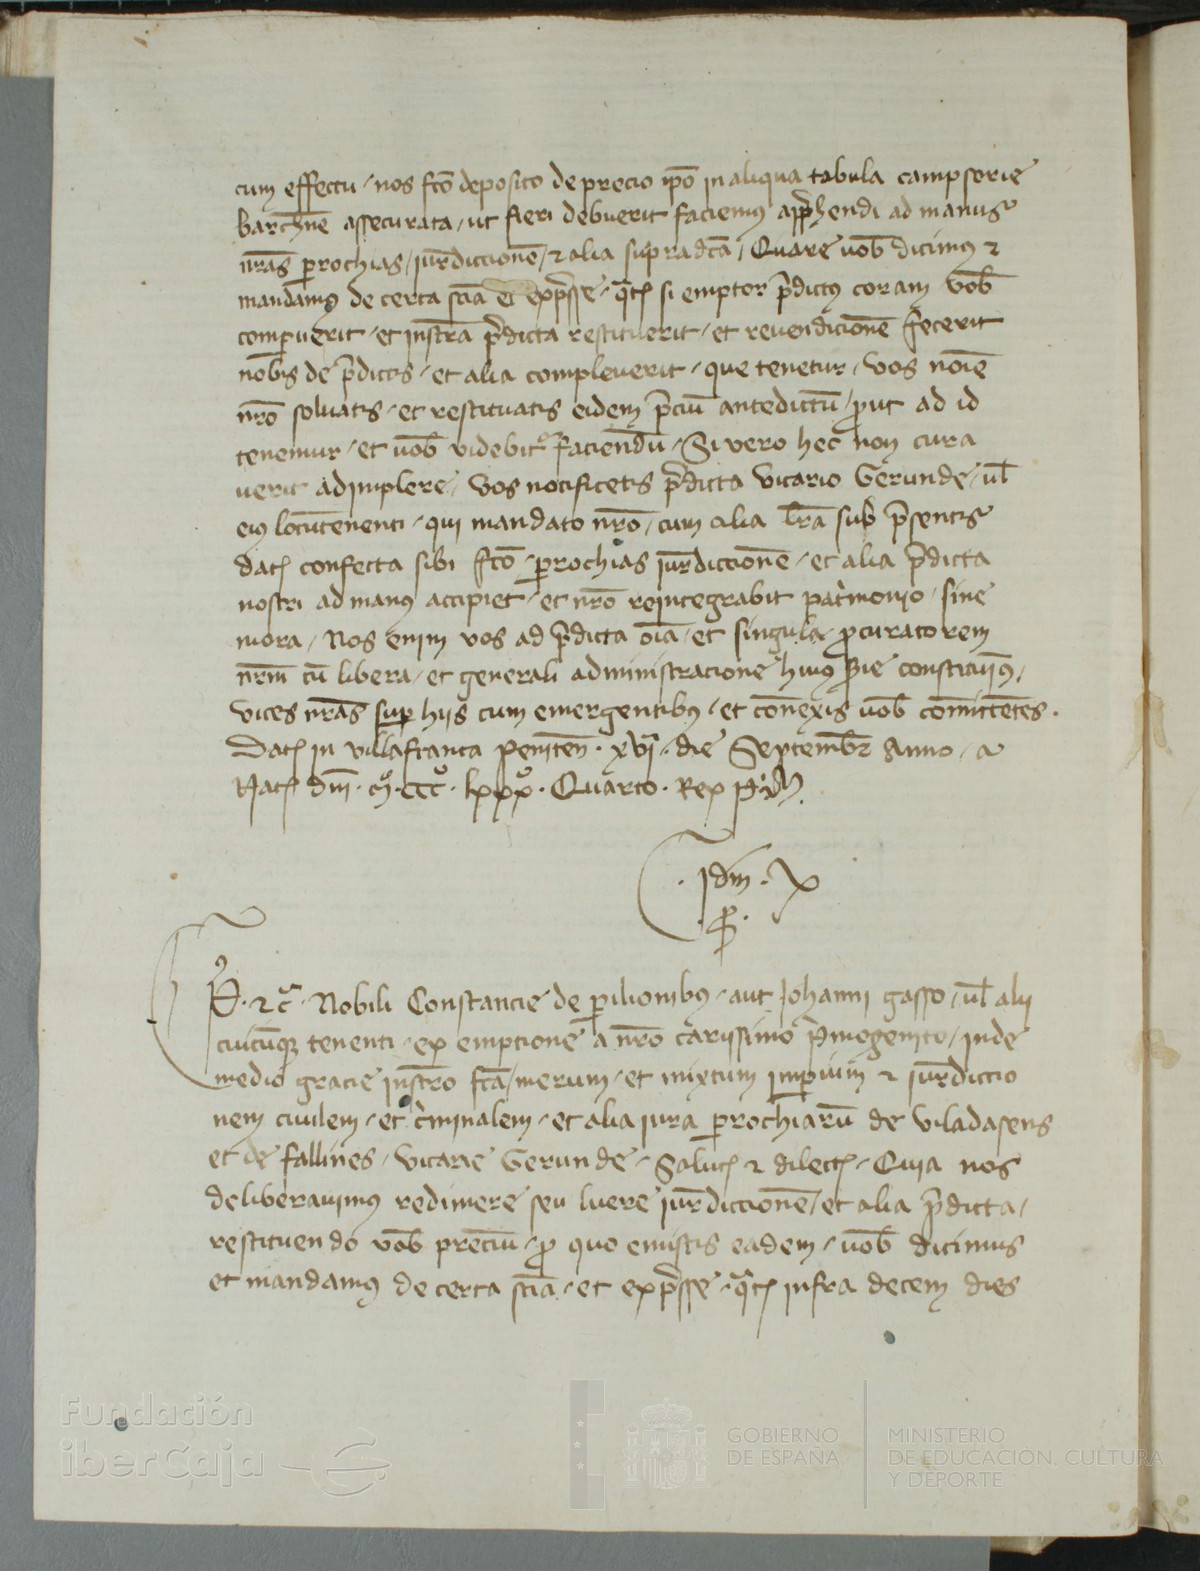 cum effectu / nos fc̄o deposito de precio ip̄o in aliqua tabula campsorie
barch̄ne assecurata / ut fieri debuerit faciemus app̄hendi ad manus
nr̄as p̱rochias / iur̄diccionē / ⁊ alia sup̱radc̄a / Quare uob̄ dicimus ⁊
mandamus de certa sc̄ia et exp̄sse / qt̄ȷ si emptor p̄dictus coram vob̄
comp̱uerit / et instr̄a p̄dicta restituerit / et reuendicionē fecerit
nob̄is de p̄dictis / et alia compleuerit / que tenetur / vos noīe
nr̄o soluatis / et restituatis eidem p̄ciū antedictū / ꝓut ad id
tenemur / et uob̄ videbit̄ faciendū / Si vero hec non cura
uerit adimplere / vos notificetis p̄dicta vicario Gerunde / ul̄
eius locūtenenti / qui mandato nr̄o / cum alia lr̄a sub p̄sentis
datȷ confecta sibi fc̄o / p̱rochias iur̄diccionē / et alia p̄dicta
nostri ad manus accipiet / et nr̄o reintegrabit patⁱmonio / sine
mora / Nos enim vos ad p̄dicta oīa / et singula / ꝓcuratorem
nr̄m cū libera / et generali administracione huius s̱ie constituimus /
vices nr̄as sup̱ hiis cum emergentibus / et cōnexis uob̄ cōmittētes .
Datȷ in villafranca peniteñ . xvjᵃ . die Septembr̄ Anno / a
Natȷ dn̄i . mᵒ . cccᵒ . lxxxᵒ . Quarto . Rex P.
. Idm̄ . X
. ꝓ .
P . ⁊c̄ . Nobili Constancie de p̱ilionibus / aut Johanni gasso / ul̄ alii
cuicūqꝫ tenenti / ex emptione a nr̄o carissimo pⁱmogenito / inde
medio gracie instr̄o fc̄a / merum / et mixtum imp̱ium ⁊ iur̄diccio
nem ciuilem / et cⁱminalem / et alia iura p̱rochiarū de viladasens
et de fallines / vicarie Gerunde / Salutȷ ⁊ dilectȷ / Quia nos
deliberauimus redimere seu luere iur̄diccionē / et alia p̄dicta /
restituendo vob̄ preciū / ꝓ quo emistis eadem / uob̄ dicimus
et mandamus de certa sc̄ia / et exp̄sse / qt̄ȷ infra decem dies
Fundación
iberCaja
GOBIERNO
DE ESPAÑA
MINISTERIO
DE EDUCACIÓN, CULTURA
Y DEPORTE